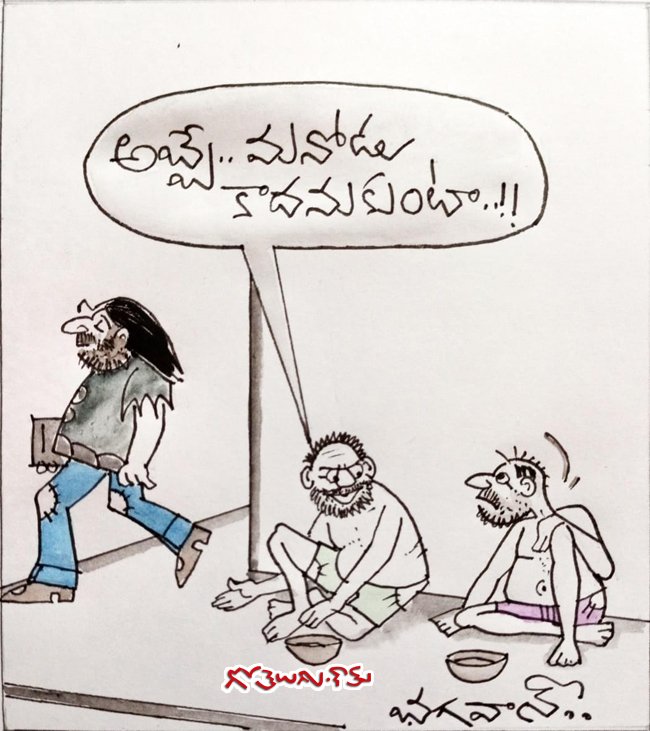 అబ్బే.. మనోడు
కాదనుకుంటా..!!
గోతెలుగు.కామ్
భగవాన్..